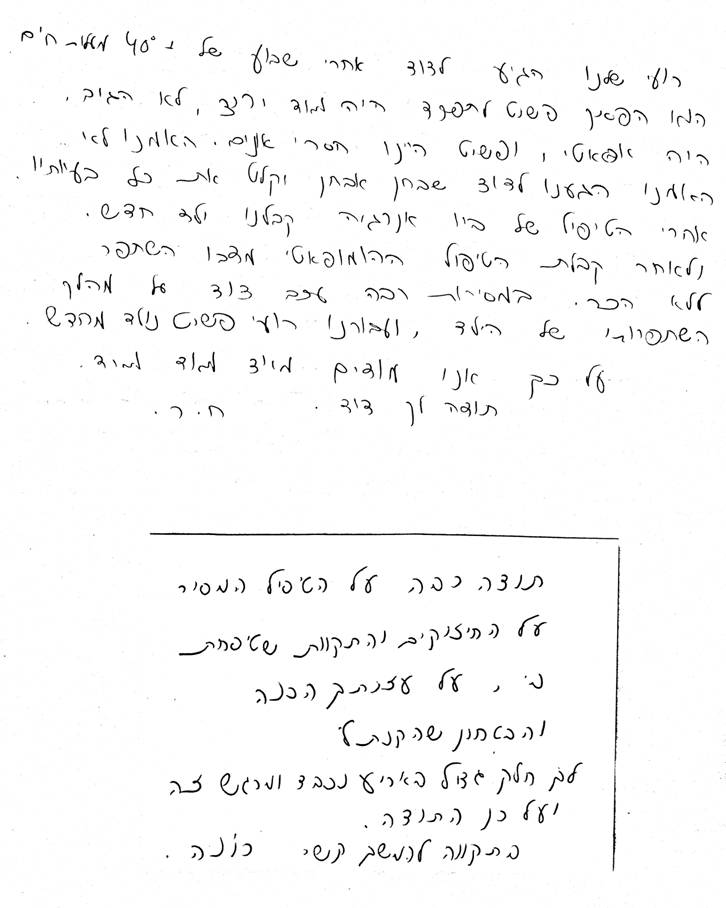 רועי שלנו הגיע לדוד אחרי שבוע של 40° מעלות חום
הוא הפסיק פשוט לתפקד היה מאוד ירוד, לא הגיב.
היה אפאטי, ופשוט היינו חסרי אונים. האמנו לא
האמנו הגענו לדוד שבחן אבחן וקלט את כל בעיותיו.
אחרי הטיפול של ביו אנרגיה קבלנו ילד חדש.
ולאחר קבלת הטיפול ההומופאטי מצבו השתפר
ללא הכר. במסירות רבה עקב דוד על מהלך
השתפרותו של הילד, ועבורנו רועי פשוט נולד מחדש.
על כך אנו מודים מאוד מאוד מאוד.
תודה לך דוד. ח.ר.
תודה רבה על הטיפול המסור
על החיזוקים והתקוות שטיפחת
בי, על עצתך הכנה
והבטחון שהקנת לי
לך חלק גדול באריע נכבד ומרגש זה
ועל כן התודה.
בתקווה להמשך קשר